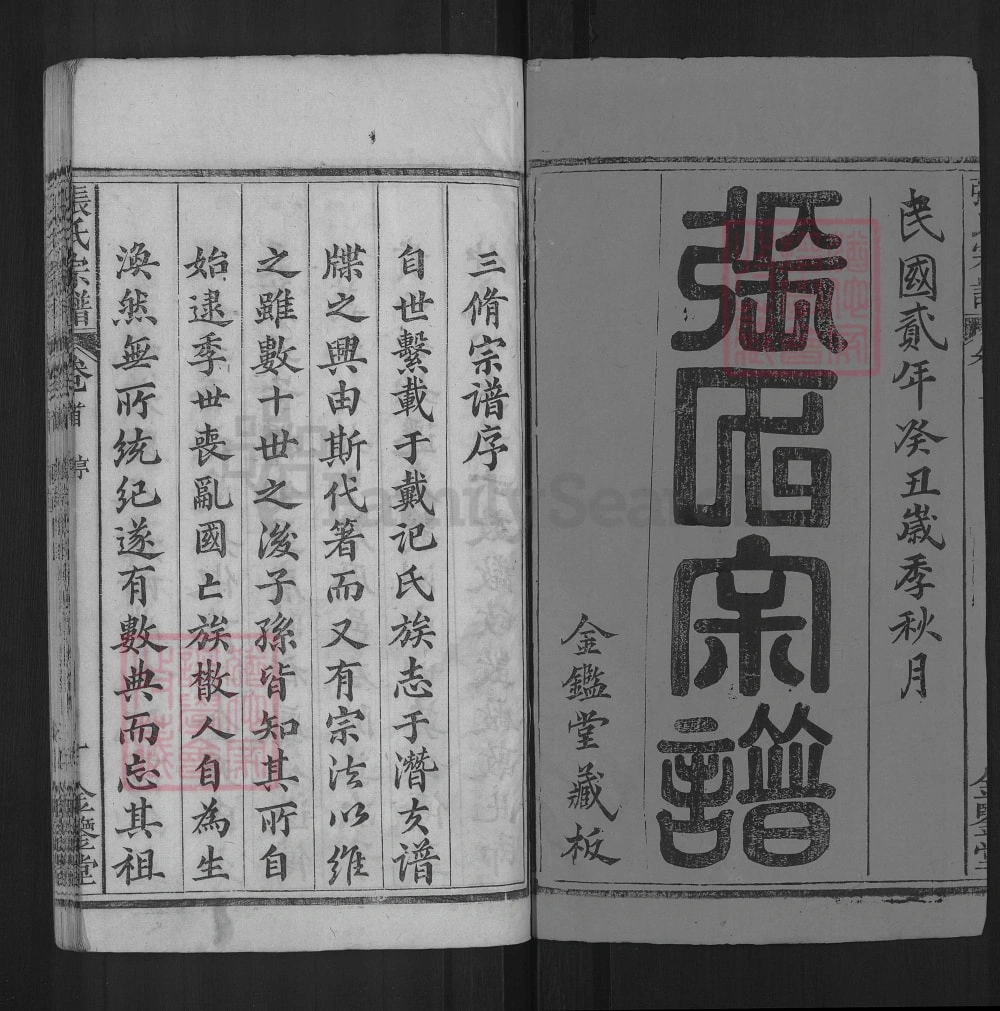 民國貳年癸丑歲季秋月
張氏宗譜
金鑑堂藏板
三脩宗譜序
自世繫載于戴記氏族志于潛夫譜
牒之興由斯代箸而又有宗法以維
之雖數十世之後子孫皆知其所自
始逮季世喪亂國亡族散人自為生
渙然無所統紀遂有數典而忘其祖
張氏宗譜 卷首 序 金鑑堂
FamilySearch